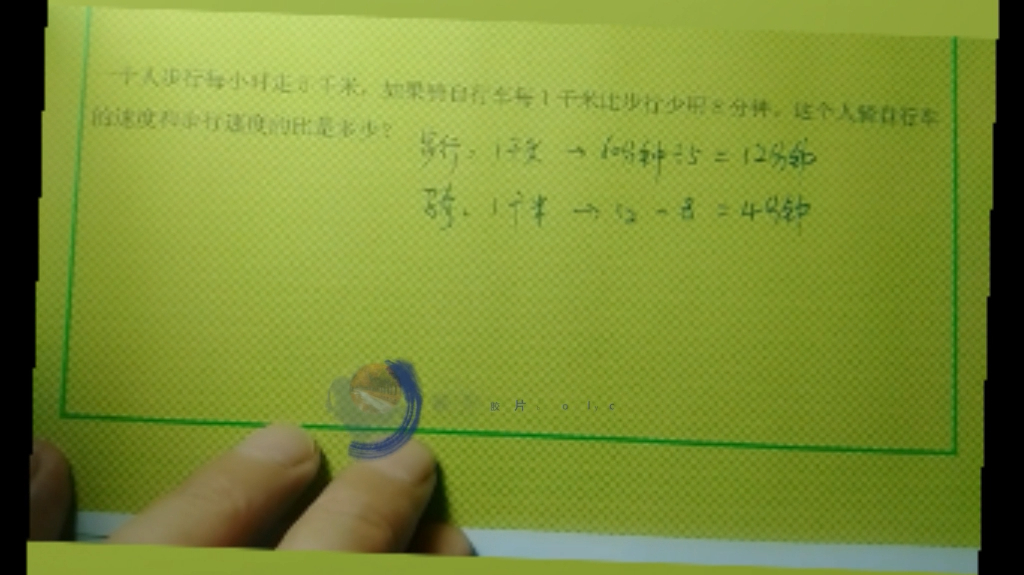 一个人步行每小时走5千米,如果骑自行车每1千米比步行少用8分钟,这个人骑自行车
的速度和步行速度的比是多少?
步行:1千米 → 60分钟÷5 = 12分钟
骑:1千米 → 12 - 8 = 4分钟
胶片